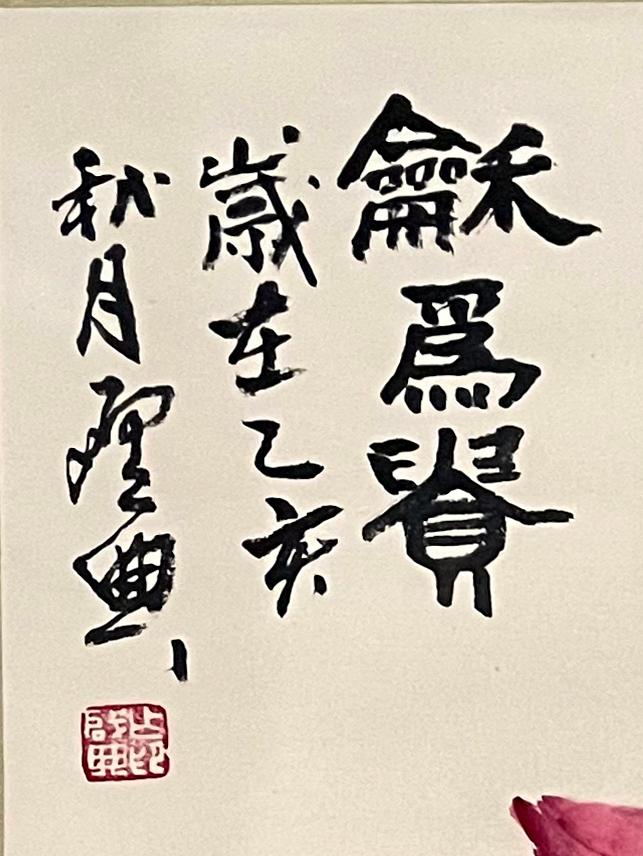 龢爲貴
歲在乙亥
秋月典